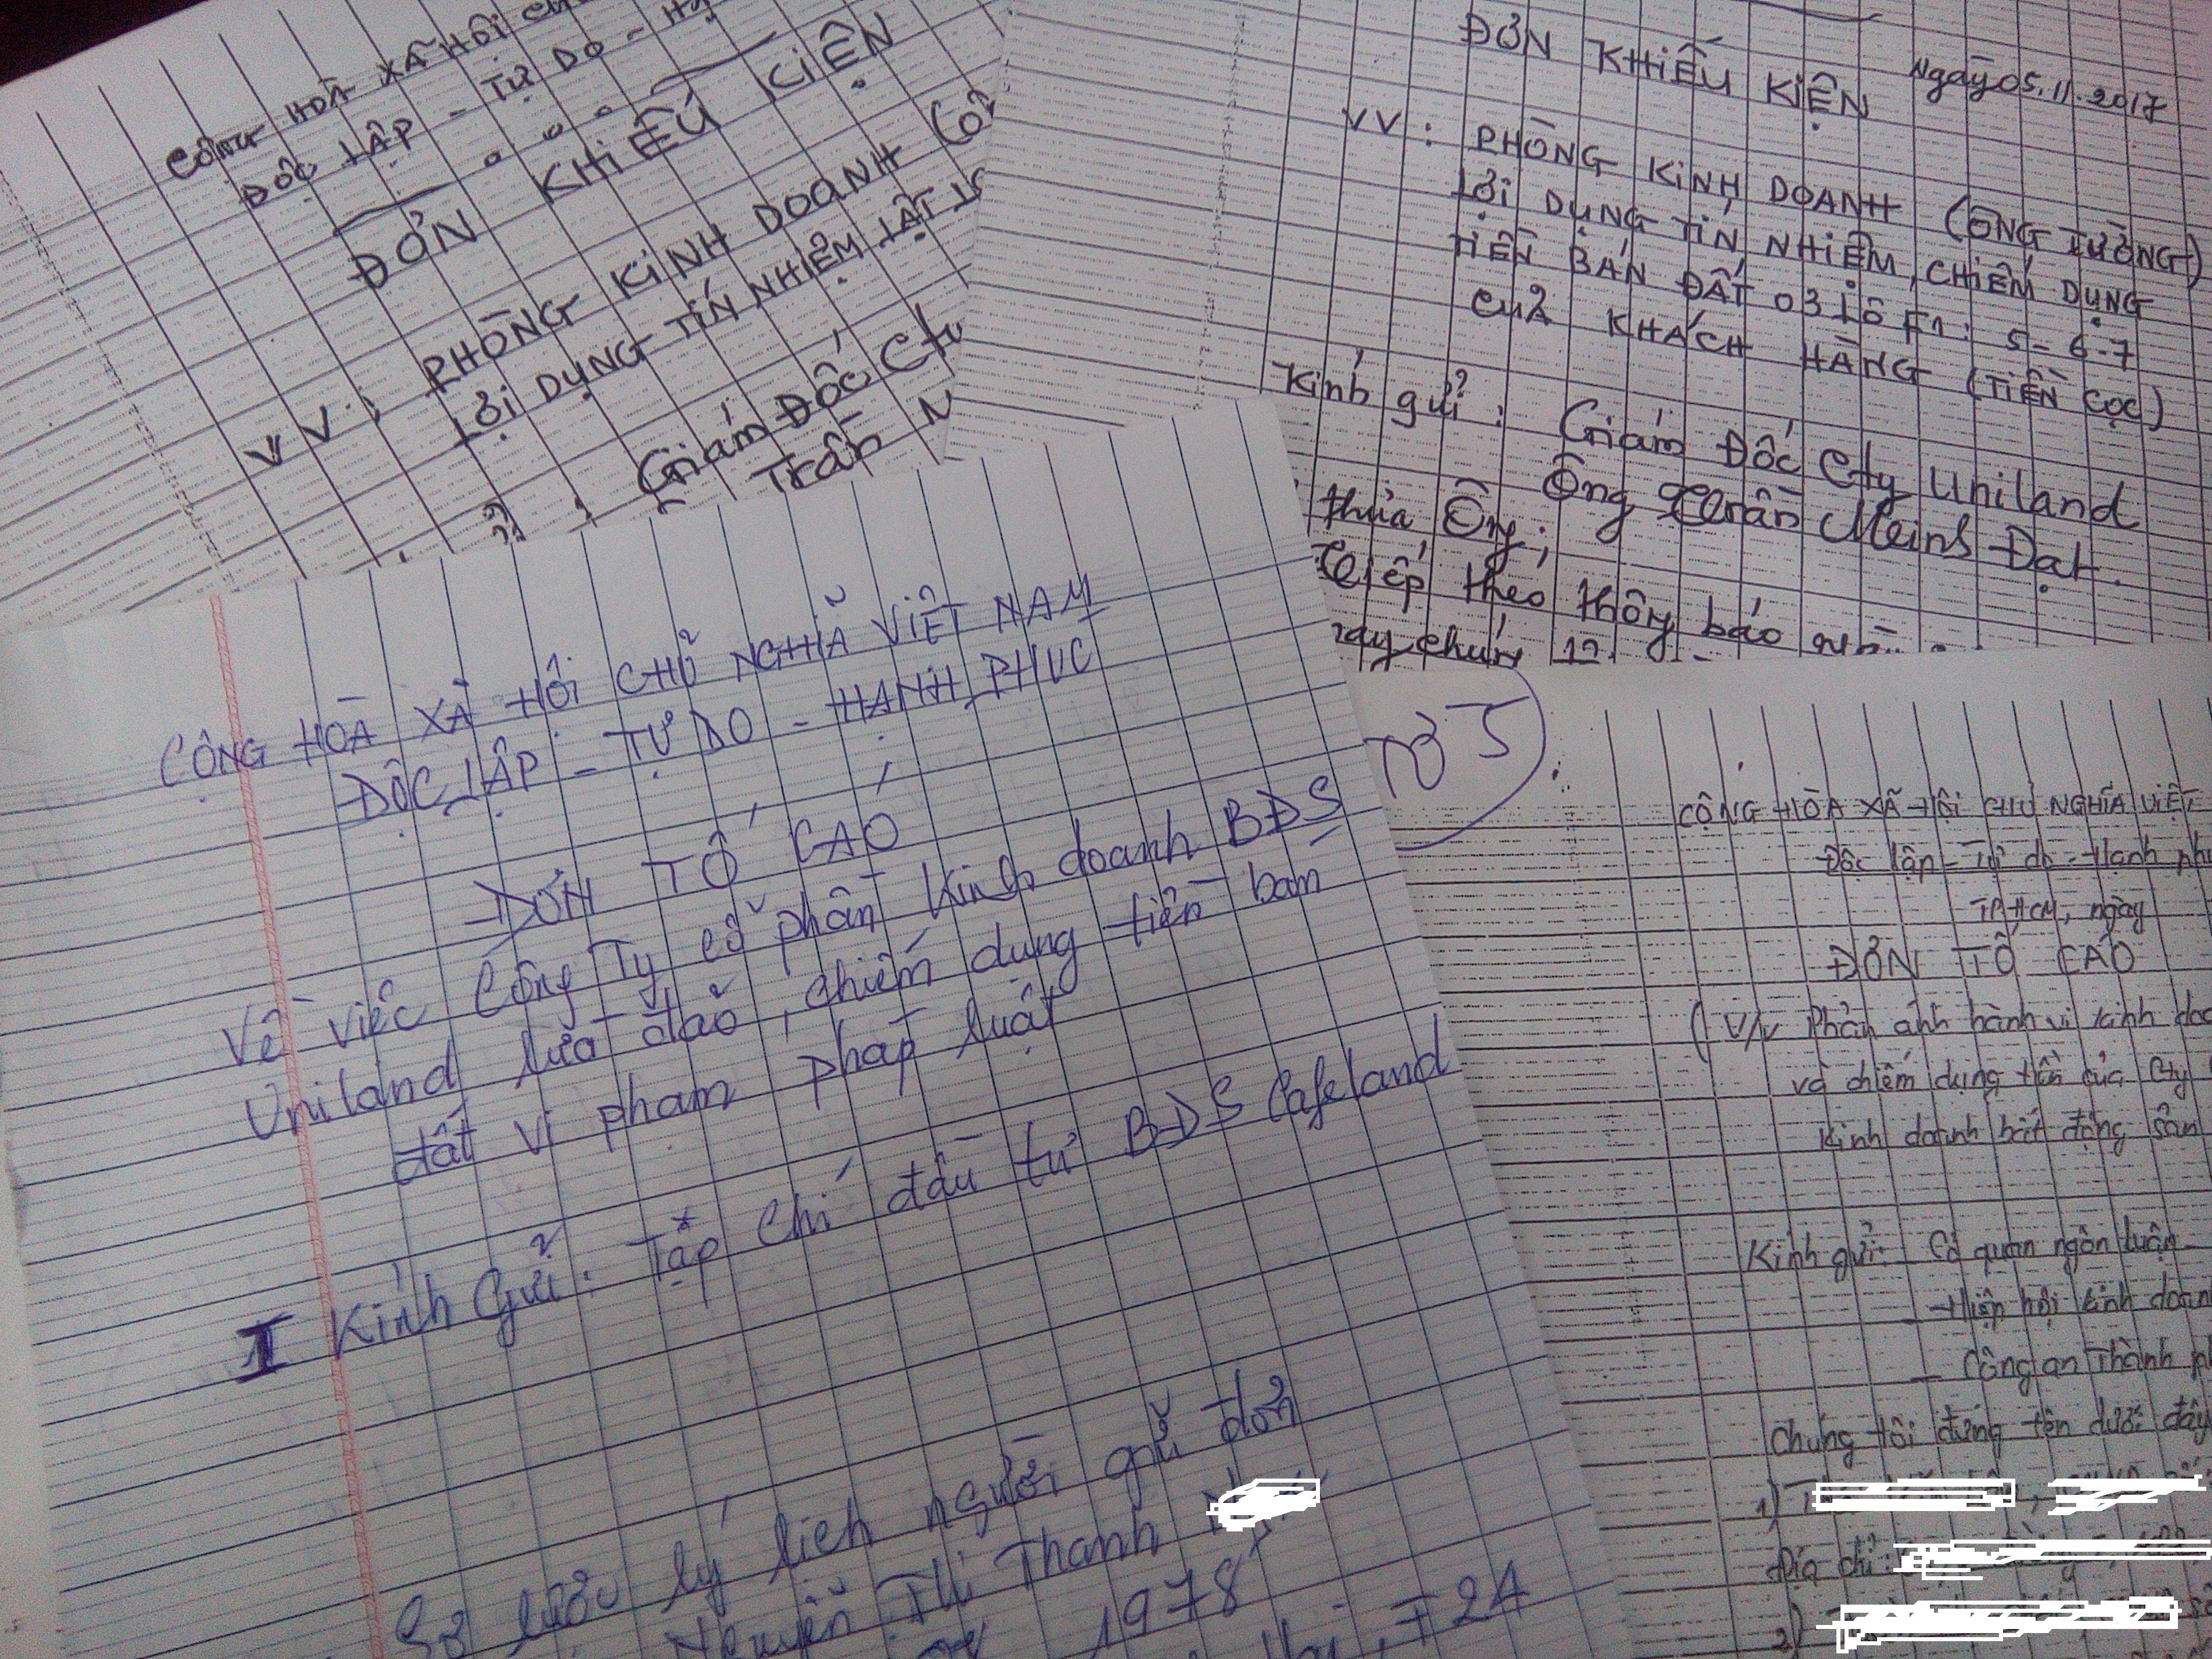 CỘNG HOÀ XÃ HỘI
ĐỘC LẬP - TỰ DO -
ĐƠN KHIẾU KIỆN
VV: PHÒNG KINH DOANH
LỢI DỤNG TÍN NHIỆM
Giám Đốc Cty
Trần
ĐƠN KHIẾU KIỆN
Ngày 05.11.2017
VV: PHÒNG KINH DOANH (ÔNG TƯỜNG)
LỢI DỤNG TÍN NHIỆM, CHIẾM DỤNG
TIỀN BÁN ĐẤT 03 LÔ F1: 5-6-7
CỦA KHÁCH HÀNG (TIỀN CỌC)
Kính gửi: Giám Đốc Cty Uniland
Ông Trần Meinb Đạt.
thưa Ông;
Tiếp theo thông báo
CỘNG HOÀ XÃ HỘI CHỦ NGHĨA VIỆT NAM
ĐỘC LẬP - TỰ DO - HẠNH PHÚC
ĐƠN TỐ CÁO
Về việc Công Ty cổ phần kinh doanh BĐS
Uniland lừa đảo, chiếm dụng tiền bam
đất vi phạm pháp luật
I Kính Gửi: Tạp chí đầu tư BĐS Cafeland
Sơ lược lý lịch người gửi đơn
Nguyễn Thị Thanh
1978
F24
CỘNG HÒA XÃ HỘI CHỦ NGHĨA VIỆT
Độc lập - Tự do - Hạnh
TP.HCM, ngày
ĐƠN TỐ CÁO
(V/v Phản ánh hành vi kinh
và chiếm dụng tiền của Cty
kinh doanh bất động sản
Kính gửi: - Cơ quan ngôn luận
- Hiệp hội kinh doanh
- Công an Thành
Chúng tôi đứng tên dưới đây
1)
Địa chỉ:
2)